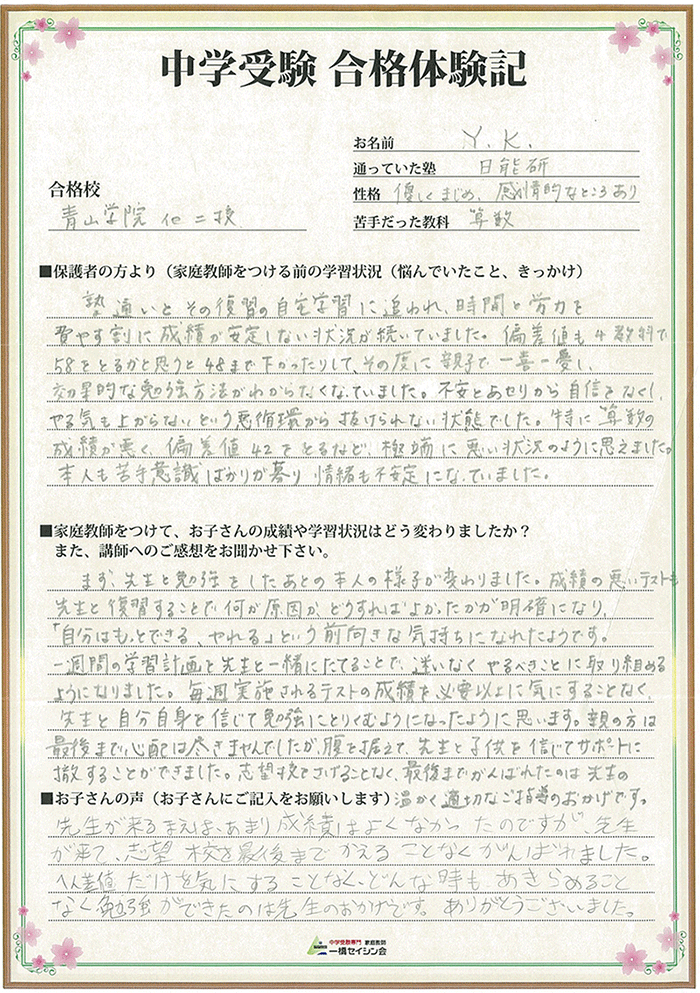 中学受験 合格体験記
お名前 Y. K.
通っていた塾 日能研
合格校
性格 優しくまじめ、感情的なところあり
青山学院 他二校
苦手だった教科 算数
■保護者の方より（家庭教師をつける前の学習状況（悩んでいたこと、きっかけ）
塾通いとその復習の自宅学習に追われ、時間と労力を
費やす割に成績が安定しない状況が続いていました。偏差値も4教科で
58をとるかと思うと48まで下がったりして、その度に親子で一喜一憂し、
効果的な勉強方法がわからなくなっていました。不安とあせりから自信をなくし、
やる気も上がらないという悪循環から抜けられない状態でした。特に算数の
成績が悪く、偏差値42をとるなど、極端に悪い状況のように思えました。
本人も苦手意識ばかりが募り情緒も不安定になっていました。
■家庭教師をつけて、お子さんの成績や学習状況はどう変わりましたか？
また、講師へのご感想をお聞かせ下さい。
まず、先生と勉強をしたあとの本人の様子が変わりました。成績の悪いテストも
先生と復習することで何が原因か、どうすればよかったかが明確になり、
「自分はもっとできる、やれる」という前向きな気持ちになれたようです。
一週間の学習計画を先生と一緒にたてることで、迷いなくやるべきことに取り組める
ようになりました。毎週実施されるテストの成績を必要以上に気にすることなく、
先生と自分自身を信じて勉強にとりくむようになったように思います。親の方は
最後まで心配は尽きませんでしたが、腹を据えて、先生と子供を信じてサポートに
撤することができました。志望校をさげることなく、最後までがんばれたのは先生の
温かく適切なご指導のおかげです。
■お子さんの声（お子さんにご記入をお願いします）
先生が来るまえは、あまり成績はよくなかったのですが、先生
が来て、志望校を最後までかえることなくがんばれました。
へん差値だけを気にすることなく、どんな時もあきらめること
なく勉強ができたのは先生のおかげです。ありがとうございました。
中学受験専門 家庭教師
一橋セイシン会